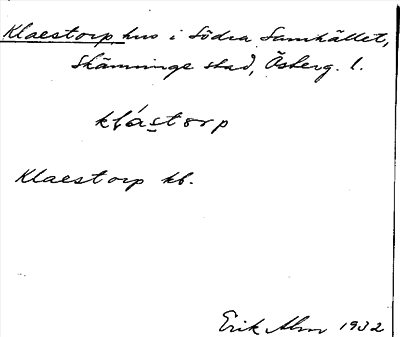 Klaestorp hus i Södra Samhället,
Skänninge stad, Östberg. l.
klástorp
Klaestorp kb.
Erik Alm 1932